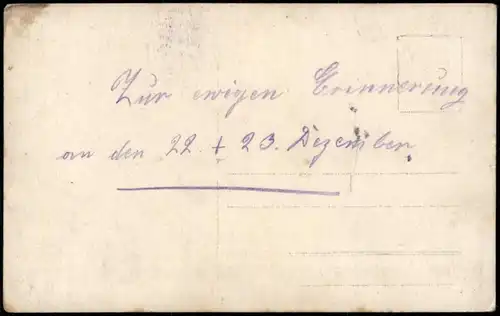 Zur ewigen Erinnerung
an den 22. + 23. Dezember.